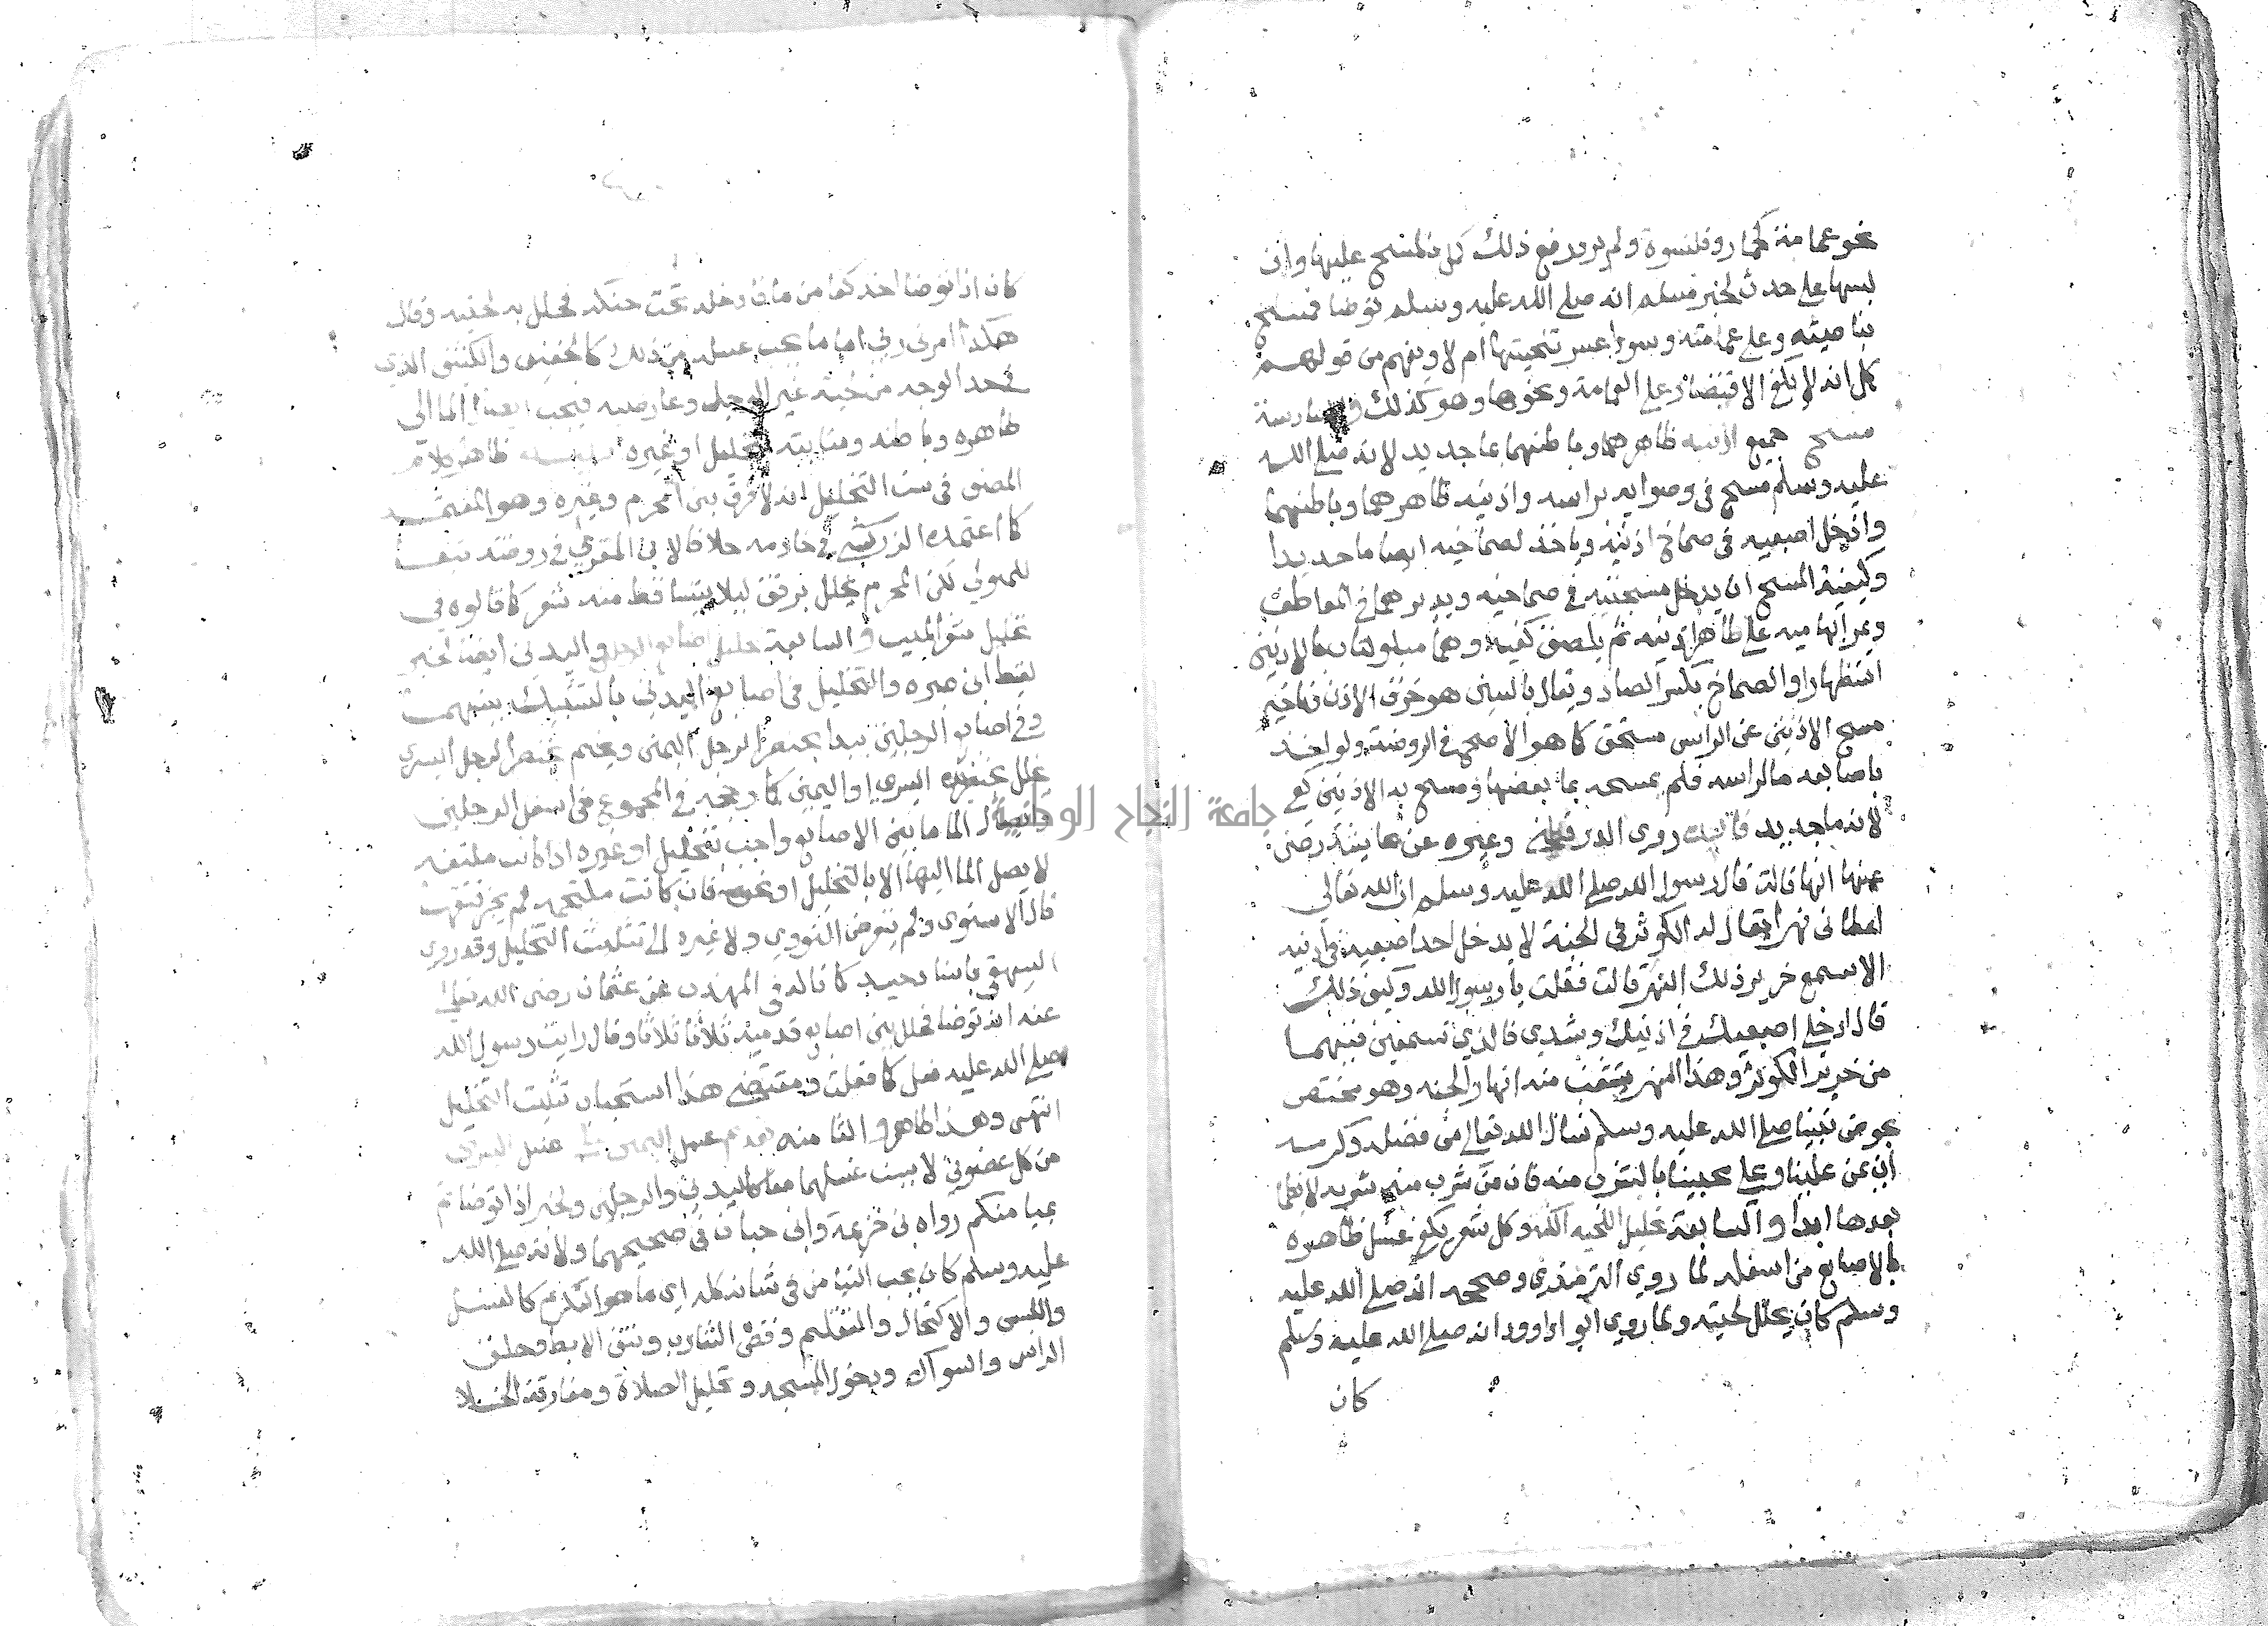 نحو عمامة كخمار وقلنسوة ولم يرد رفع ذلك كمل بالمسح عليها وان
لبسها على حدث لخبر مسلم انه صلى الله عليه وسلم توضا فمسح
بناصيته وعلى عمامته وسوا عسر تنحيتها ام لا ويفهم من قولهم
كمل انه لا يكفي الاقتصار على العمامة ونحوها وهو كذلك والسادسة
مسح جميع اذنيه ظاهرهما وباطنهما بما جديد لانه صلى الله
عليه وسلم مسح في وضوايه براسه واذنيه ظاهرهما وباطنهما
وادخل اصبعيه في صماخ اذنيه وياخذ لصماخيه ايضا ما جديدا
وكيفية المسح ان يدخل مسبحتيه في صماخيه ويديرهما في المعاطف
ويمر ابهاميه على ظاهر اذنيه ثم يلصق كفيه وهما مبلولتان بالاذنين
استظهارا والصماخ بكسر الصاد ويقال بالسين هو خرق الاذن وتاخير
مسح الاذنين عن الراس مستحق كما هو الاصح في الروضة ولو اخذ
باصابعه ما لراسه فلم يمسحه بما بعضها ومسح به الاذنين كفى
لانه ما جديد فايدت روى الدارقطني وغيره عن عايشة رضي
عنها انها قالت قال رسول الله صلى الله عليه وسلم ان الله تعالى
اعطاني نهرا يقال له الكوثر في الجنة لا يدخل احد اصبعيه في اذنيه
الا سمع خرير ذلك النهر قالت فقلت يا رسول الله وكيف ذلك
قال ادخلي اصبعيك في اذنيك وشدي فالذي تسمعين فيهما
من خرير الكوثر وهذا النهر يتشعب منه انهار الجنة وهو مختص
بحوض نبينا صلى الله عليه وسلم نسال الله تعالى من فضله وكرمه
ان يمن علينا وعلى محبينا بالشرب منه فان من شرب منه شربه لا يظما
بعدها ابدا والسابعة تخليل اللحيه الكثة وكل شعر يكفي غسل ظاهره
بالاصابع من اسفله لما روى الترمذي وصححه انه صلى الله عليه
وسلم كان يخلل لحيته ولما روى ابو داوود انه صلى الله عليه وسلم
كان
كان اذا توضا اخذ كفا من ماء فادخله تحت حنكه فخلل به لحيته وقال
هكذا امرني ربي اما ما يجب غسله من ذلك كالخفيف والكثيف الذي
في حد الوجه من لحية غير الرجل وعارضيه فيجب ايصال الما الى
ظاهره وباطنه ومنابته بتخليل او غيره ظاهر كلام
المصنف في سنت التخليل انه لا فرق بين المحرم وغيره وهو المعتمد
كما اعتمده الزركشي في خادمه خلافا لابن المقري في روضته تبعا
للمتولي لكن المحرم يخلل برفق ليلا يتساقط منه شعر كما قالوه في
تخليل شعر الميت والسابعة تخليل اصابع الرجلين واليدين ايضا لخبر
لقيط ابن صبره والتخليل في اصابع اليدين بالتشبيك بينهما
وفي اصابع الرجلين يبدا بخنصر الرجل اليمنى ويختم بخنصر الرجل اليسرى
يخلل بخنصر يده اليسرى او اليمنى كما رجحه في المجموع من اسفل الرجلين
وايصال الما ما بين الاصابع واجب بتخليل او غيره اذا كانت ملتفه
لا يصل الما اليها الا بالتخليل او نحوه فان كانت ملتحمه لم يجز فتقها
قال الاسنوي ولم يتعرض النووي ولا غيره الى تثليث التخليل وقد روى
البيهقي باسناد جيد كما قاله في المهذب عن عثمان رضي الله تعالى
عنه انه توضا فخلل بين اصابع قدميه ثلاثا ثلاثا وقال رايت رسول الله
صلى الله عليه فعل كما فعلت ومقتضى هذا استحباب تثليث التخليل
انتهى وهذا ظاهر والثامنه تقديم غسل اليمنى على غسل اليسرى
من كل عضوين لا يسن غسلهما معا كاليدين والرجلين ولخبر اذا توضاتم
بميامنكم رواه بن خزيمة وابن حبان في صحيحهما ولانه صلى الله
عليه وسلم كان يحب التيامن في شانه كله اي ما هو للتكريم كالغسل
واللبس والاكتحال والتقليم وقص الشارب ونتف الابط وحلق
الراس والسواك ودخول المسجد وتحليل الصلاة ومفارقة الخلا
جامعة النجاح الوطنية